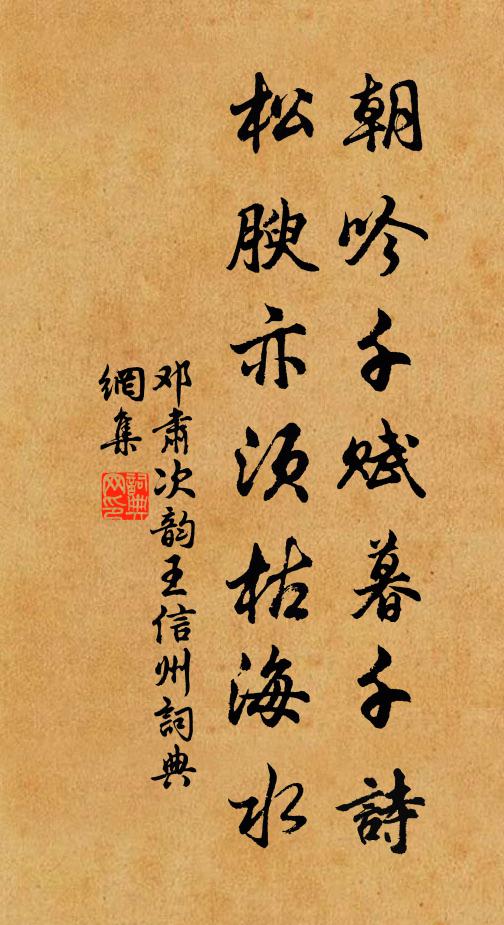 朝吟千赋暮千詩
松腴亦须枯海水
邓肃次韵王信州詞典
網集
詞典
网印